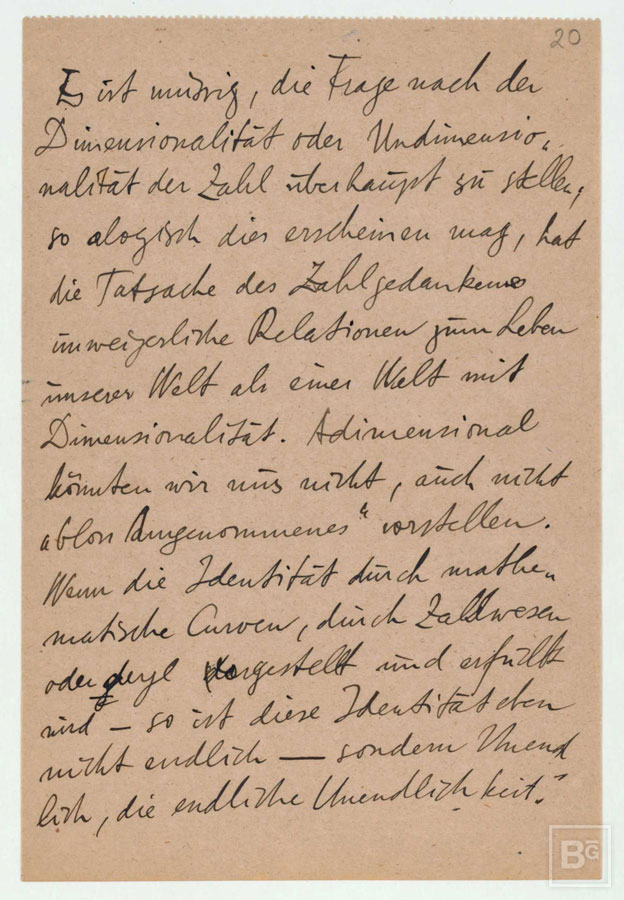 20
Es ist müssig, die Frage nach der
Dimensionalität oder Undimensio„
nalität der Zahl überhaupt zu stellen,
so alogisch dies erscheinen mag, hat
die Tatsache des Zahlgedankens
unweigerliche Relationen zum Leben
unserer Welt als einer Welt mit
Dimensionalität. Adimensional
könnten wir uns nicht, auch nicht
„bloss Angenommenes“ vorstellen.
Wenn die Identität durch mathe„
matische Curven, durch Zahlwesen
oder dergl dargestellt und erfüllt
wird – so ist diese Identität eben
nicht endlich – sondern Unend
lich, die endliche Unendlichkeit.“
BG